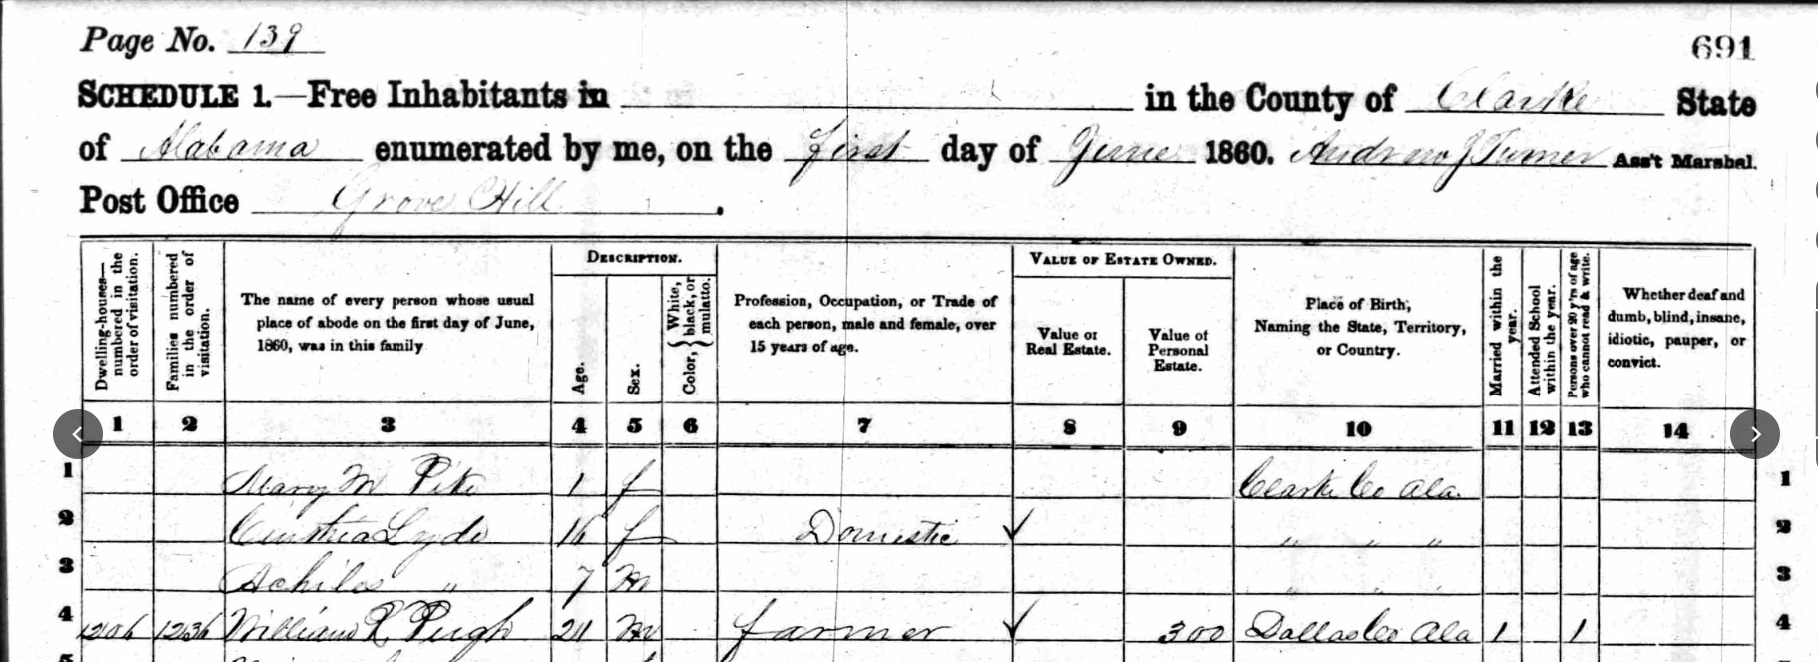 Page No. 139
691
SCHEDULE 1.—Free Inhabitants in in the County of Clarke State
of Alabama enumerated by me, on the first day of June 1860. Andrew J Turner Ass't Marshal.
Post Office Grove Hill.
Dwelling-houses—numbered in the order of visitation.
Families numbered in the order of visitation.
The name of every person whose usual
place of abode on the first day of June,
1860, was in this family
DESCRIPTION.
Age.
Sex.
Color, { White, black, or mulatto.
Profession, Occupation, or Trade of
each person, male and female, over
15 years of age.
VALUE OF ESTATE OWNED.
Value of
Real Estate.
Value of
Personal
Estate.
Place of Birth,
Naming the State, Territory,
or Country.
Married within the year.
Attended School within the year.
Persons over 20 y'rs of age who cannot read & write.
Whether deaf and
dumb, blind, insane,
idiotic, pauper, or
convict.
1 2 3 4 5 6 7 8 9 10 11 12 13 14
1 Mary M Pike 1 f Clarke Co Ala. 1
2 Cinthia Lyde 16 f Domestic ✓ " " " 2
3 Achiles " 7 m " " " 3
4 1206 1236 William R Pugh 21 m farmer ✓ 300 Dallas Co Ala 1 1 4